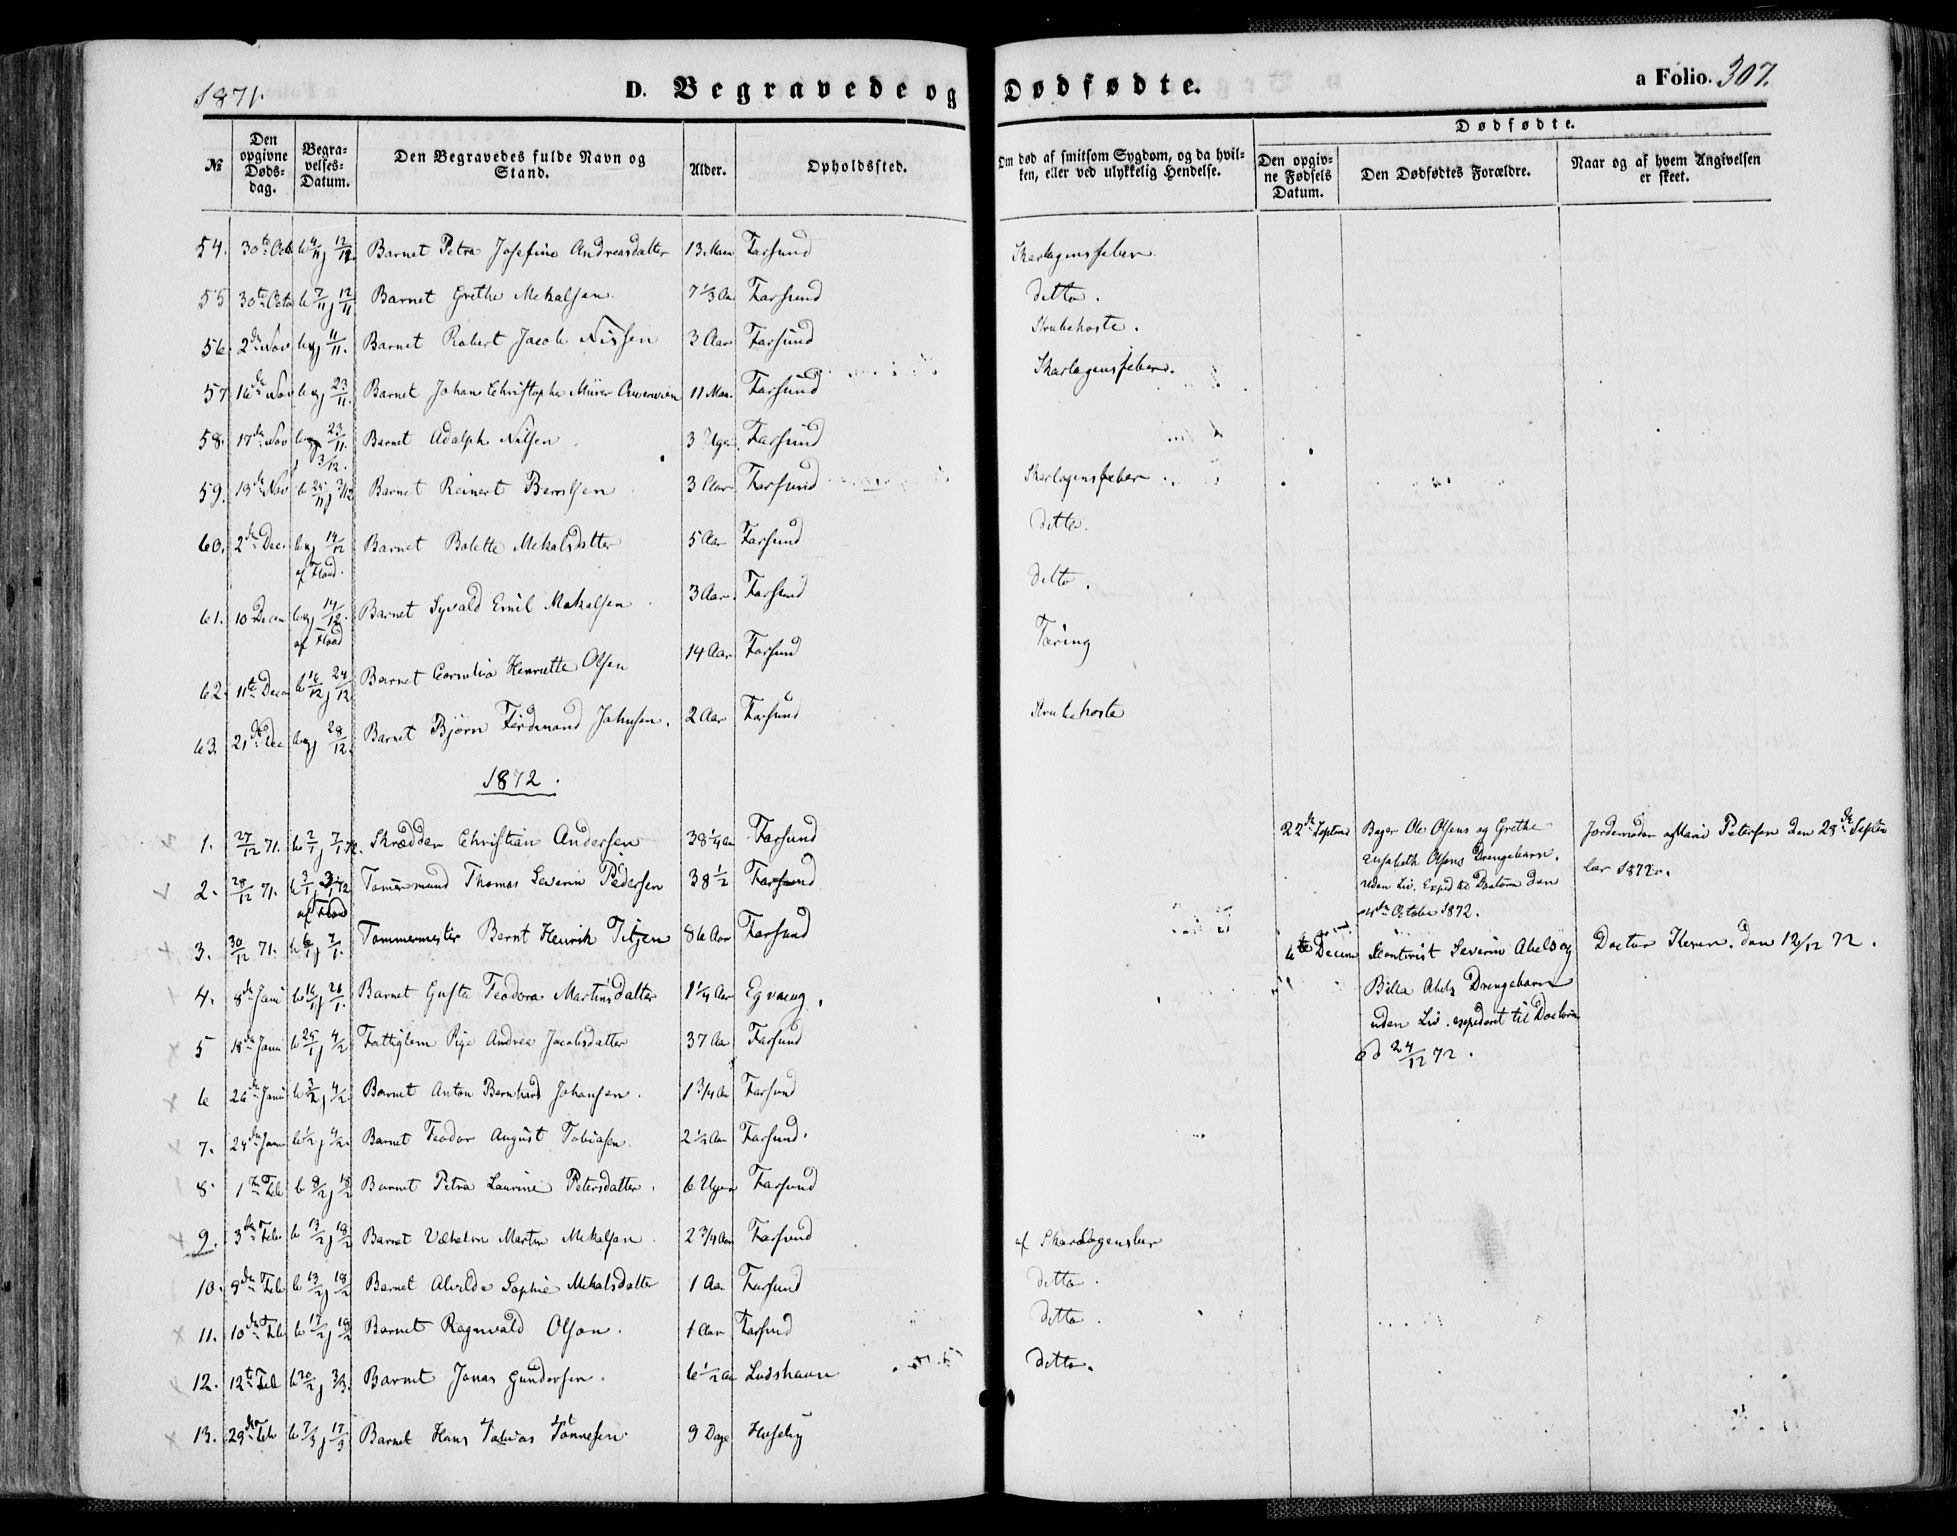 1871.
D. Begravede og Dødfødte.
a Folio. 307.
Dødfødte.
№
Den opgivne Døds-dag.
Begra-velses-Datum.
Den Begravedes fulde Navn og Stand.
Alder.
Opholdssted.
Om død af smitsom Sygdom, og da hvil-ken, eller ved ulykkelig Hendelse.
Den opgiv-ne Fødsels Datum.
Den Dødfødtes Forældre.
Naar og af hvem Angivelsen er skeet.
54. 30te Oct b 4/11 j 12/12. Barnet Petra Josefine Andreasdatter 13 Maan Farsund Skarlagensfeber.
55 30te Octo b 7/11 j 12/11 Barnet Grethe Mekalsen. 7 1/3 Aar Farsund ditto.
56. 2de Nov b og j 11/11. Barnet Robert Jacob Nissen 3 Aar Farsund Strubehoste.
57 16de Nov b og j 23/11. Barnet Johan Christopher 11 Maa. Farsund Skarlagensfeber.
58. 17de Nov b 23/11. j 3/12. Barnet Adolph Nilsen 3 Uger Farsund
59. 13de Nov b 25/11 j 3/12 Barnet Reinert Berntsen 3 Aar Farsund Skarlagensfeber.
60. 2den Dec. b og j 14/12 af Flood. Barnet Bolette Mekalsdatter 5 Aar Farsund ditto.
61. 10 Decem b og j 14/12. af Flood Barnet Syvald Emil Mekalsen 3 Aar. Farsund ditto.
62. 11te Decem b 16/12 j 24/12 Barnet Cornelia Henriette Olsen 14 Aar Farsund Tæring
63. 21de Dec b og j 28/12. Barnet Bjørn Ferdinand Johnsen. 2 Aar Farsund Strubehoste
1872.
1. 27/12 71. b 2/1 j 7/1 72. Skrædder Christian Andersen 38 1/4 Aar Farsund
22de Septem Bager Ole Olsens og Grethe Jordemoder Marie Petersen den 28de Septem
Elisabeth Olsens Drengebarn. ber 1872.
uden Liv. Exped til Doctoren den
4de October 1872.
2. 28/12 71. b 3/1 j 72 af Flood Tømmermand Thomas Severin Pedersen 38 1/2 Farsund
3. 30/12 71. b 6/1 j 7/1. Tømmermester Bernt Henrik Titjen 86 Aar Farsund
6te Decem Severin Abels og Doctor den 12/12 72.
Billa Abels Drengebarn
uden Liv. expederet til Doctoren
d 24/12 72.
4. 8de Janu b 16/1 j 20/1. Barnet Gusta Teodora Martinsdatter 1 1/4 Aar Egvaag.
5 18de Janu b 25/1 j 4/2 Fattiglem Pige Andrea Jacobsdatter 37 Aar Farsund
6 26de Janu b 3/2 j 4/2. Barnet Anton Bernhard Johansen. 1 3/4 Aar Farsund
7. 24de Janu b 1/2 j 4/2. Barnet Teodor August Tobiasen. 2 1/2 Aar Farsund.
8. 1ste Feb b 9/2 j 18/2 Barnet Petra Laurine Petersdatter. 6 Uger Farsund
9. 3die Feb b 13/2 j 18/2 Barnet Martin Mekalsen 2 3/4 Aar Farsund af
10. 9de Feb b 13/2 j 18/2 Barnet Alvilde Sophie Mekalsdatter 1 Aar Farsund ditto.
11. 10de Feb b 17/2 j 18/2 Barnet Ragnvald Olsen. 1 Aar Farsund ditto.
12. 12te Feb b 20/2 j 3/3. Barnet Jonas Gundersen. 6 1/2 Aar Lushavn ditto.
13. 29de Feb b 7/3 j 17/3 Barnet Hans Tobias Tønnesen. 9 Dage Huseby